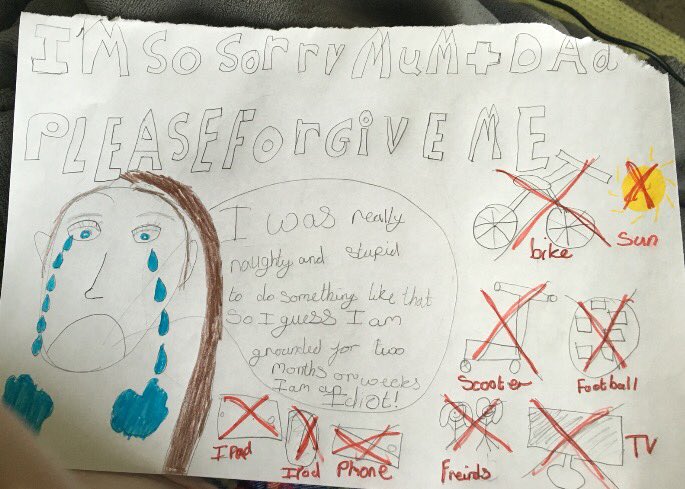 I'M SO SORRY MUM + DAd
PLEASE FORGIVE ME
I was really
naughty and stupid
to do something like that
So I guess I am
grounded for two
months or weeks
I am an
Idiot!
bike
Sun
Scooter
Football
IPad
IPod
Phone
Freinds
TV